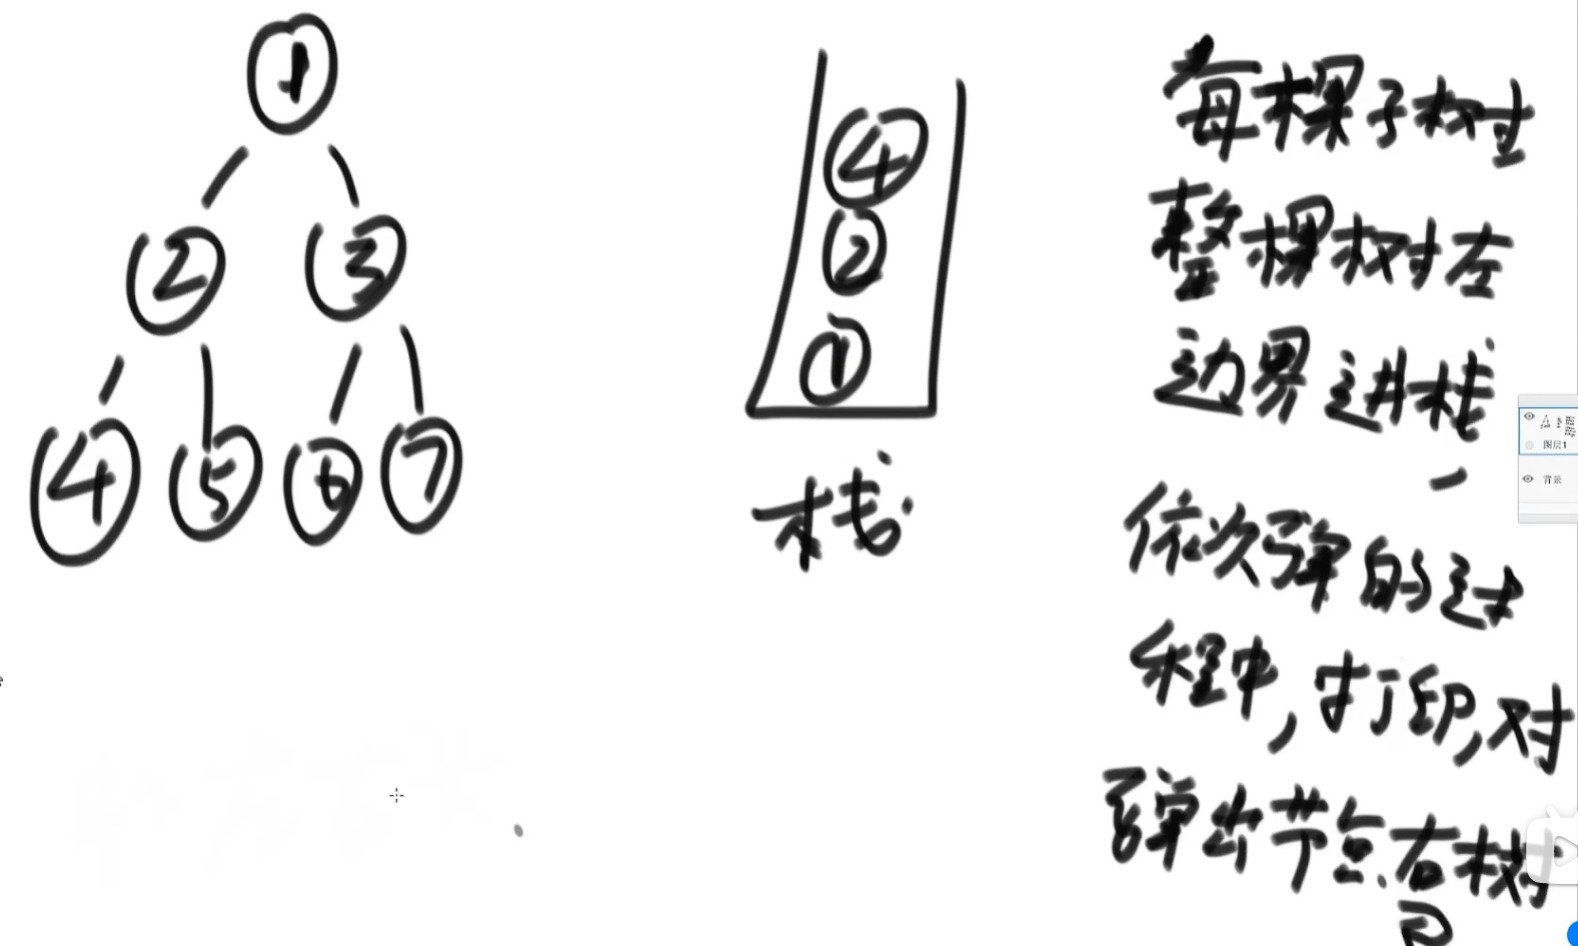 1
2 3
4 5 6 7
4
2
1
栈
每棵子树
整棵树左
边界进栈
依次弹的过
程中,打印,对
弹出节点右树
图层1
背景